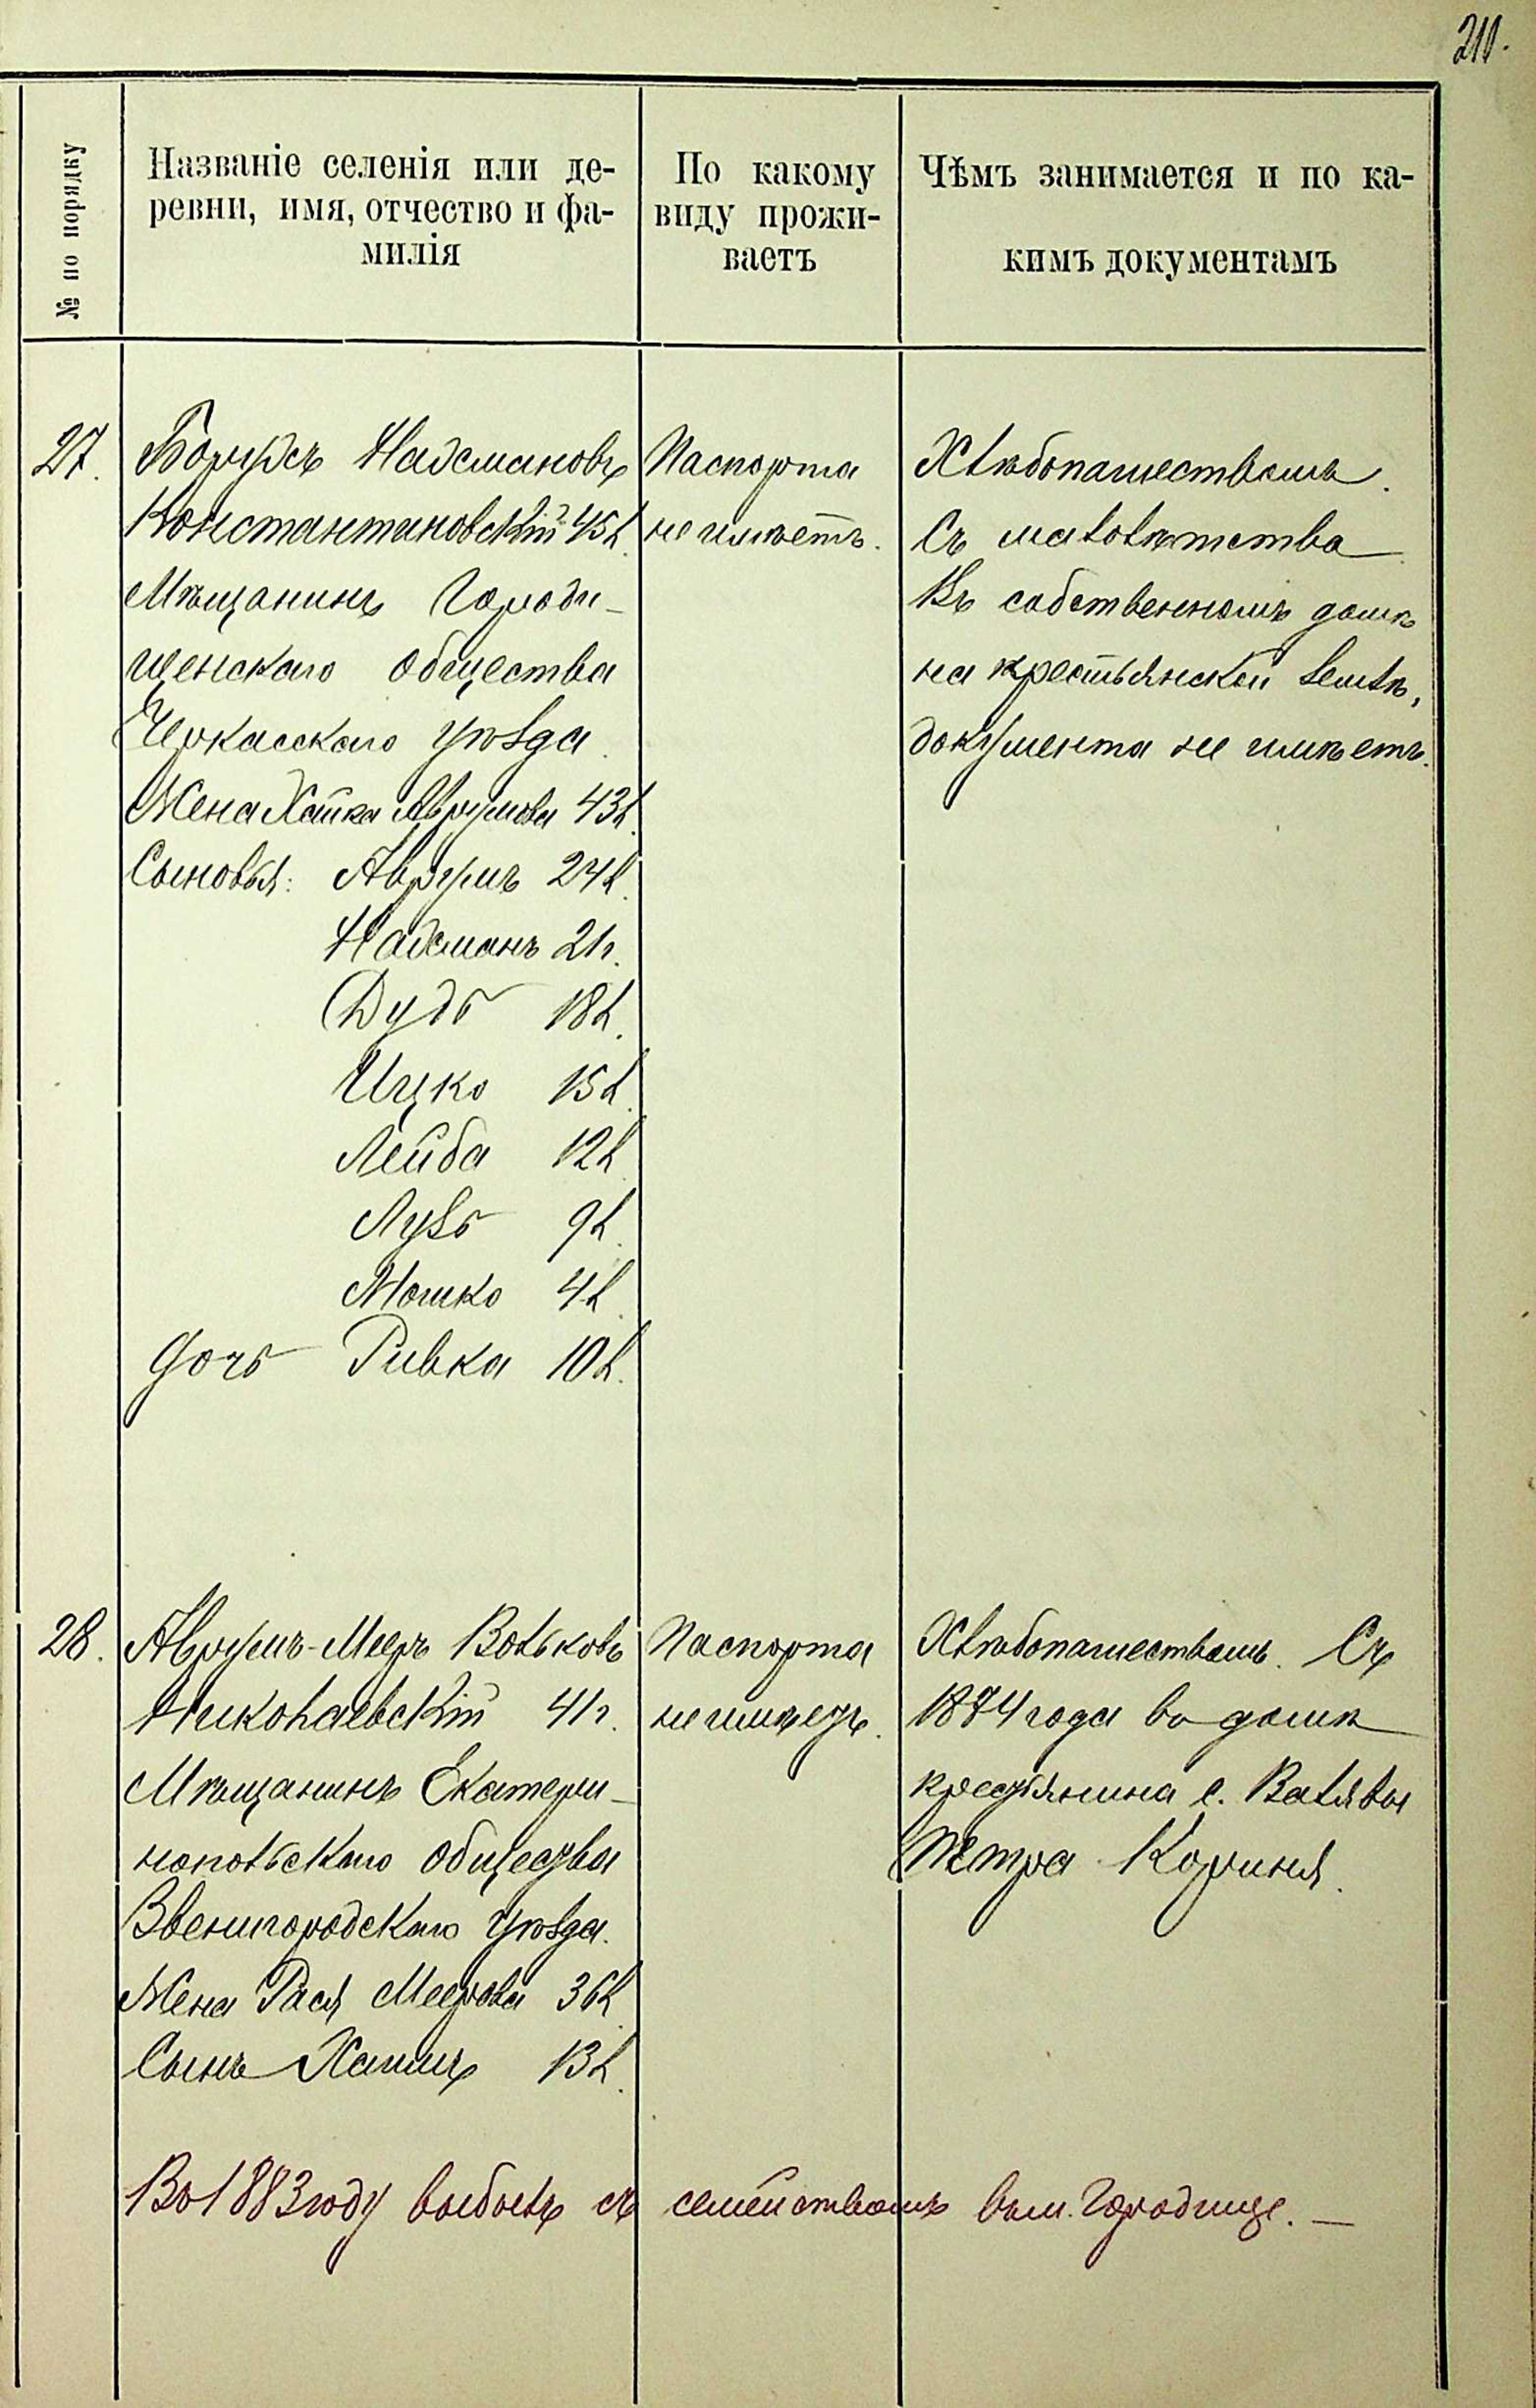 210.
№ по порядку
Названіе селенія или де-
ревни, имя, отчество и фа-
милія
По какому
виду прожи-
ваетъ
Чѣмъ занимается и по ка-
кимъ документамъ
27.
Борухъ Надсмановъ
Константиновскій 45 л.
Мѣщанинъ Городи-
щенскаго общества
Черкасскаго уѣзда.
Жена Хайка Аврумова 43 л.
Сыновья: Аврумъ 24 л.
Надсманъ 21 г.
Дудь 18 л.
Ицко 15 л.
Лейба 12 л.
Лузь 9 л.
Мошко 4 л.
Дочь Ривка 10 л.
Паспорта
не имѣетъ.
Хлѣбопашествомъ.
Съ малолѣтства
Въ собственномъ домѣ
на крестьянской землѣ,
документа не имѣетъ.
28.
Аврумъ-Мееръ Вольковъ
Николаевскій 41 г.
Мѣщанинъ Екатери-
нопольскаго общества
Звенигородскаго уѣзда.
Жена Рася Меерова 36 л.
Сынъ Хаимъ 13 л.
Паспорта
не имѣетъ.
Хлѣбопашествомъ. Съ
1874 года въ домѣ
крестьянина с. Валявы
Петра Кориня.
Въ 1883 году выбылъ съ семействомъ въ м. Городище. —